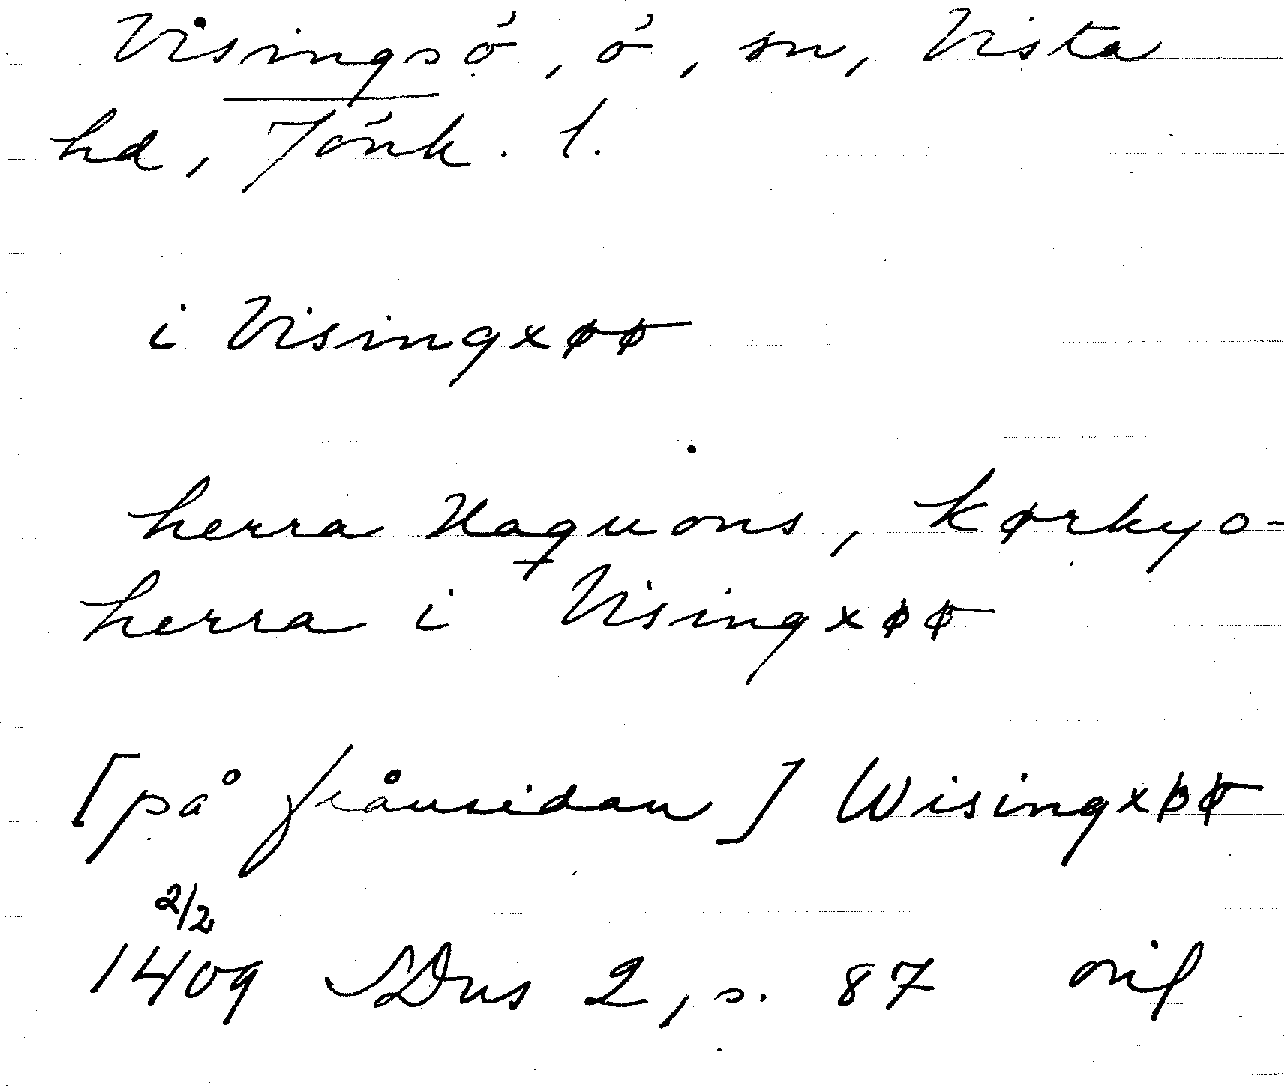 Visingsö, ö, sn, Vista
hd, Jönk. l.
i Visingxøø
herra Haquons, kørkyo-
herra i Visingxøø
[på frånsidan] Wisingxøø
2/2
1409 SDns 2, s. 87